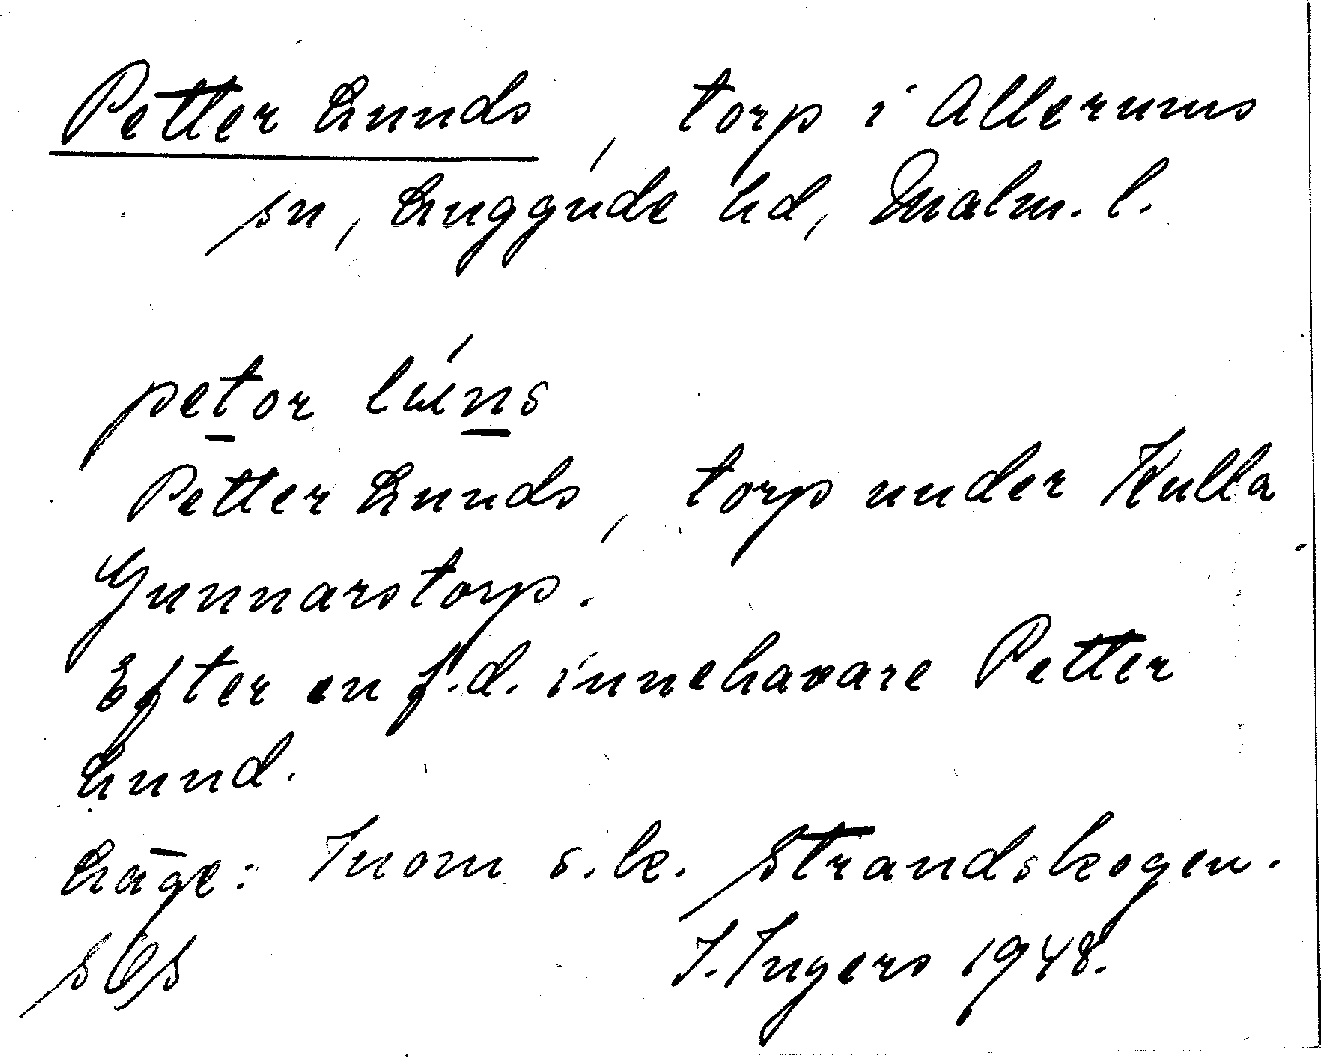 Petter Lunds, torp i Allerums
sn, Luggude hd, Malm. l.
petor lúns
Petter Lunds, torp under Kulla
Gunnarstorp.
Efter en f.d. innehavare Petter
Lund.
Läge: Inom s.k. Strandskogen.
I. Ingers 1948.